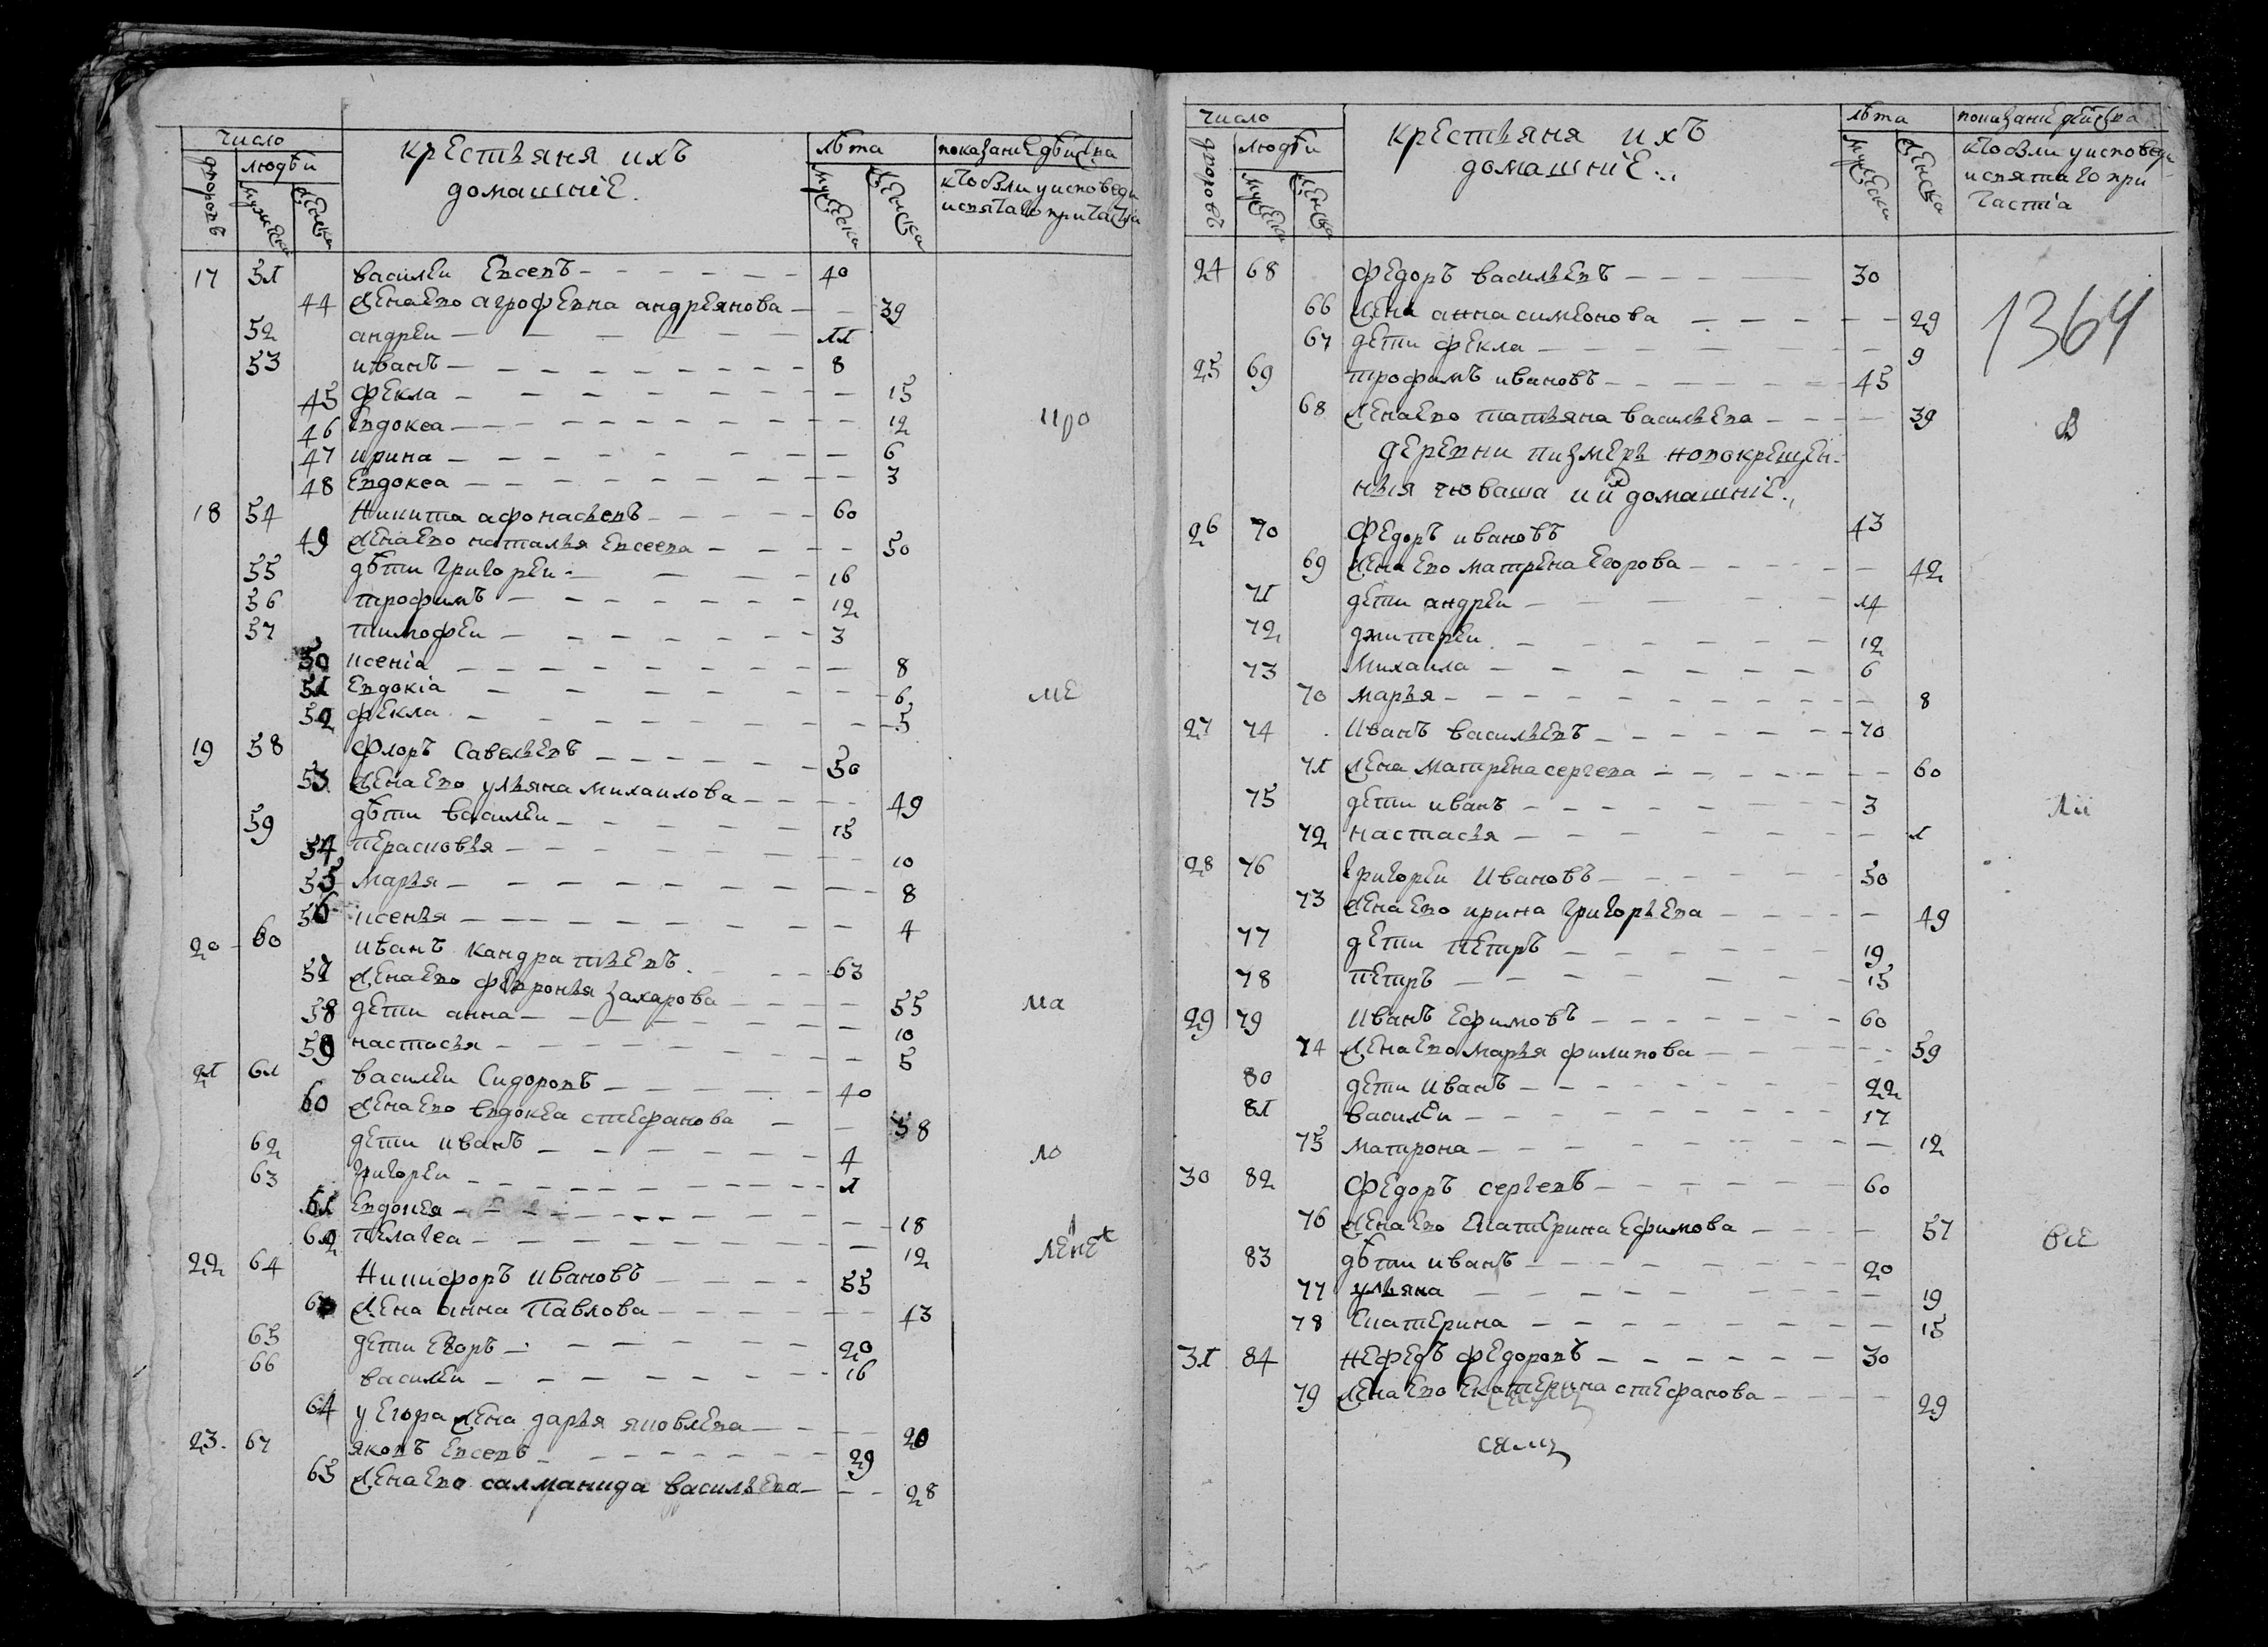 число
людѣи
дворовъ
мужеска
женска
крестьяня ихъ
домашніе.
лѣта
мужеска
женска
показание дѣиства
кто были у исповеди
и святаго причастія
17 51 василеи Евсевъ 40
44 жена ево агрофена андреянова 39
52 андреи 11
53 иванъ 8
45 фекла 15
46 Евдокеа 12
47 ирина 6
48 Евдокеа 3
18 54 Никита афонасьевъ 60
49 жена ево наталья Евсеева 50
55 дѣти григореи 16
56 трофимъ 12
57 тимофеи 3
50 ксеніа 8
51 Евдокіа 6
52 фекла 5
19 58 флоръ Савельевъ 50
53 жена ево ульяна михаилова 49
59 дѣти василеи 15
54 перасковья 10
55 марья 8
56 ксенья 4
20 60 иванъ кандратьевъ 63
57 жена ево февронья захарова 55
58 дети анна 10
59 настасья 5
21 61 василеи Сидоровъ 40
60 жена ево Евдокеа стефанова 38
62 дети иванъ 4
63 григореи 1
61 Евдокея 18
62 пелагеа 12
22 64 Никифоръ ивановъ 55
63 жена анна Павлова 43
65 дети Егоръ 20
66 василеи 16
64 у Егора жена дарья яковлева 20
23 67 яковъ Евсевъ 29
65 жена ево салманида васильева 28
число
людѣи
дворовъ
мужеска
женска
крестьяня ихъ
домашніе
лѣта
мужеска
женска
показание дѣиства
кто были у исповеди
и святаго при
частіа
1364
24 68 федоръ васильевъ 30
66 жена анна симеонова 29
67 дети фекла 9
25 69 трофимъ ивановъ 45
68 жена ево татьяна васильева 39
деревни пизмерь новокрещен-
ныя чюваша и их домашніе
26 70 федоръ ивановъ 43
69 жена ево матрена Егорова 42
71 дети андреи 14
72 дмитреи 12
73 Михаила 6
70 марья 8
27 74 Иванъ васильевъ 70
71 жена матрена сергева 60
75 дети иванъ 3
72 настасья 1
28 76 григореи Ивановъ 50
73 жена ево ирина григорьева 49
77 дети петръ 19
78 петръ 15
29 79 Иванъ Ефимовъ 60
74 жена ево марья филипова 59
80 дети Иванъ 22
81 василеи 17
75 матрона 12
30 82 федоръ сергевъ 60
76 жена ево Екатерина Ефимова 57
83 дѣти иванъ 20
77 ульяна 19
78 Екатерина 15
31 84 нефедъ федоровъ 30
79 жена ево Екатерина стефанова 29